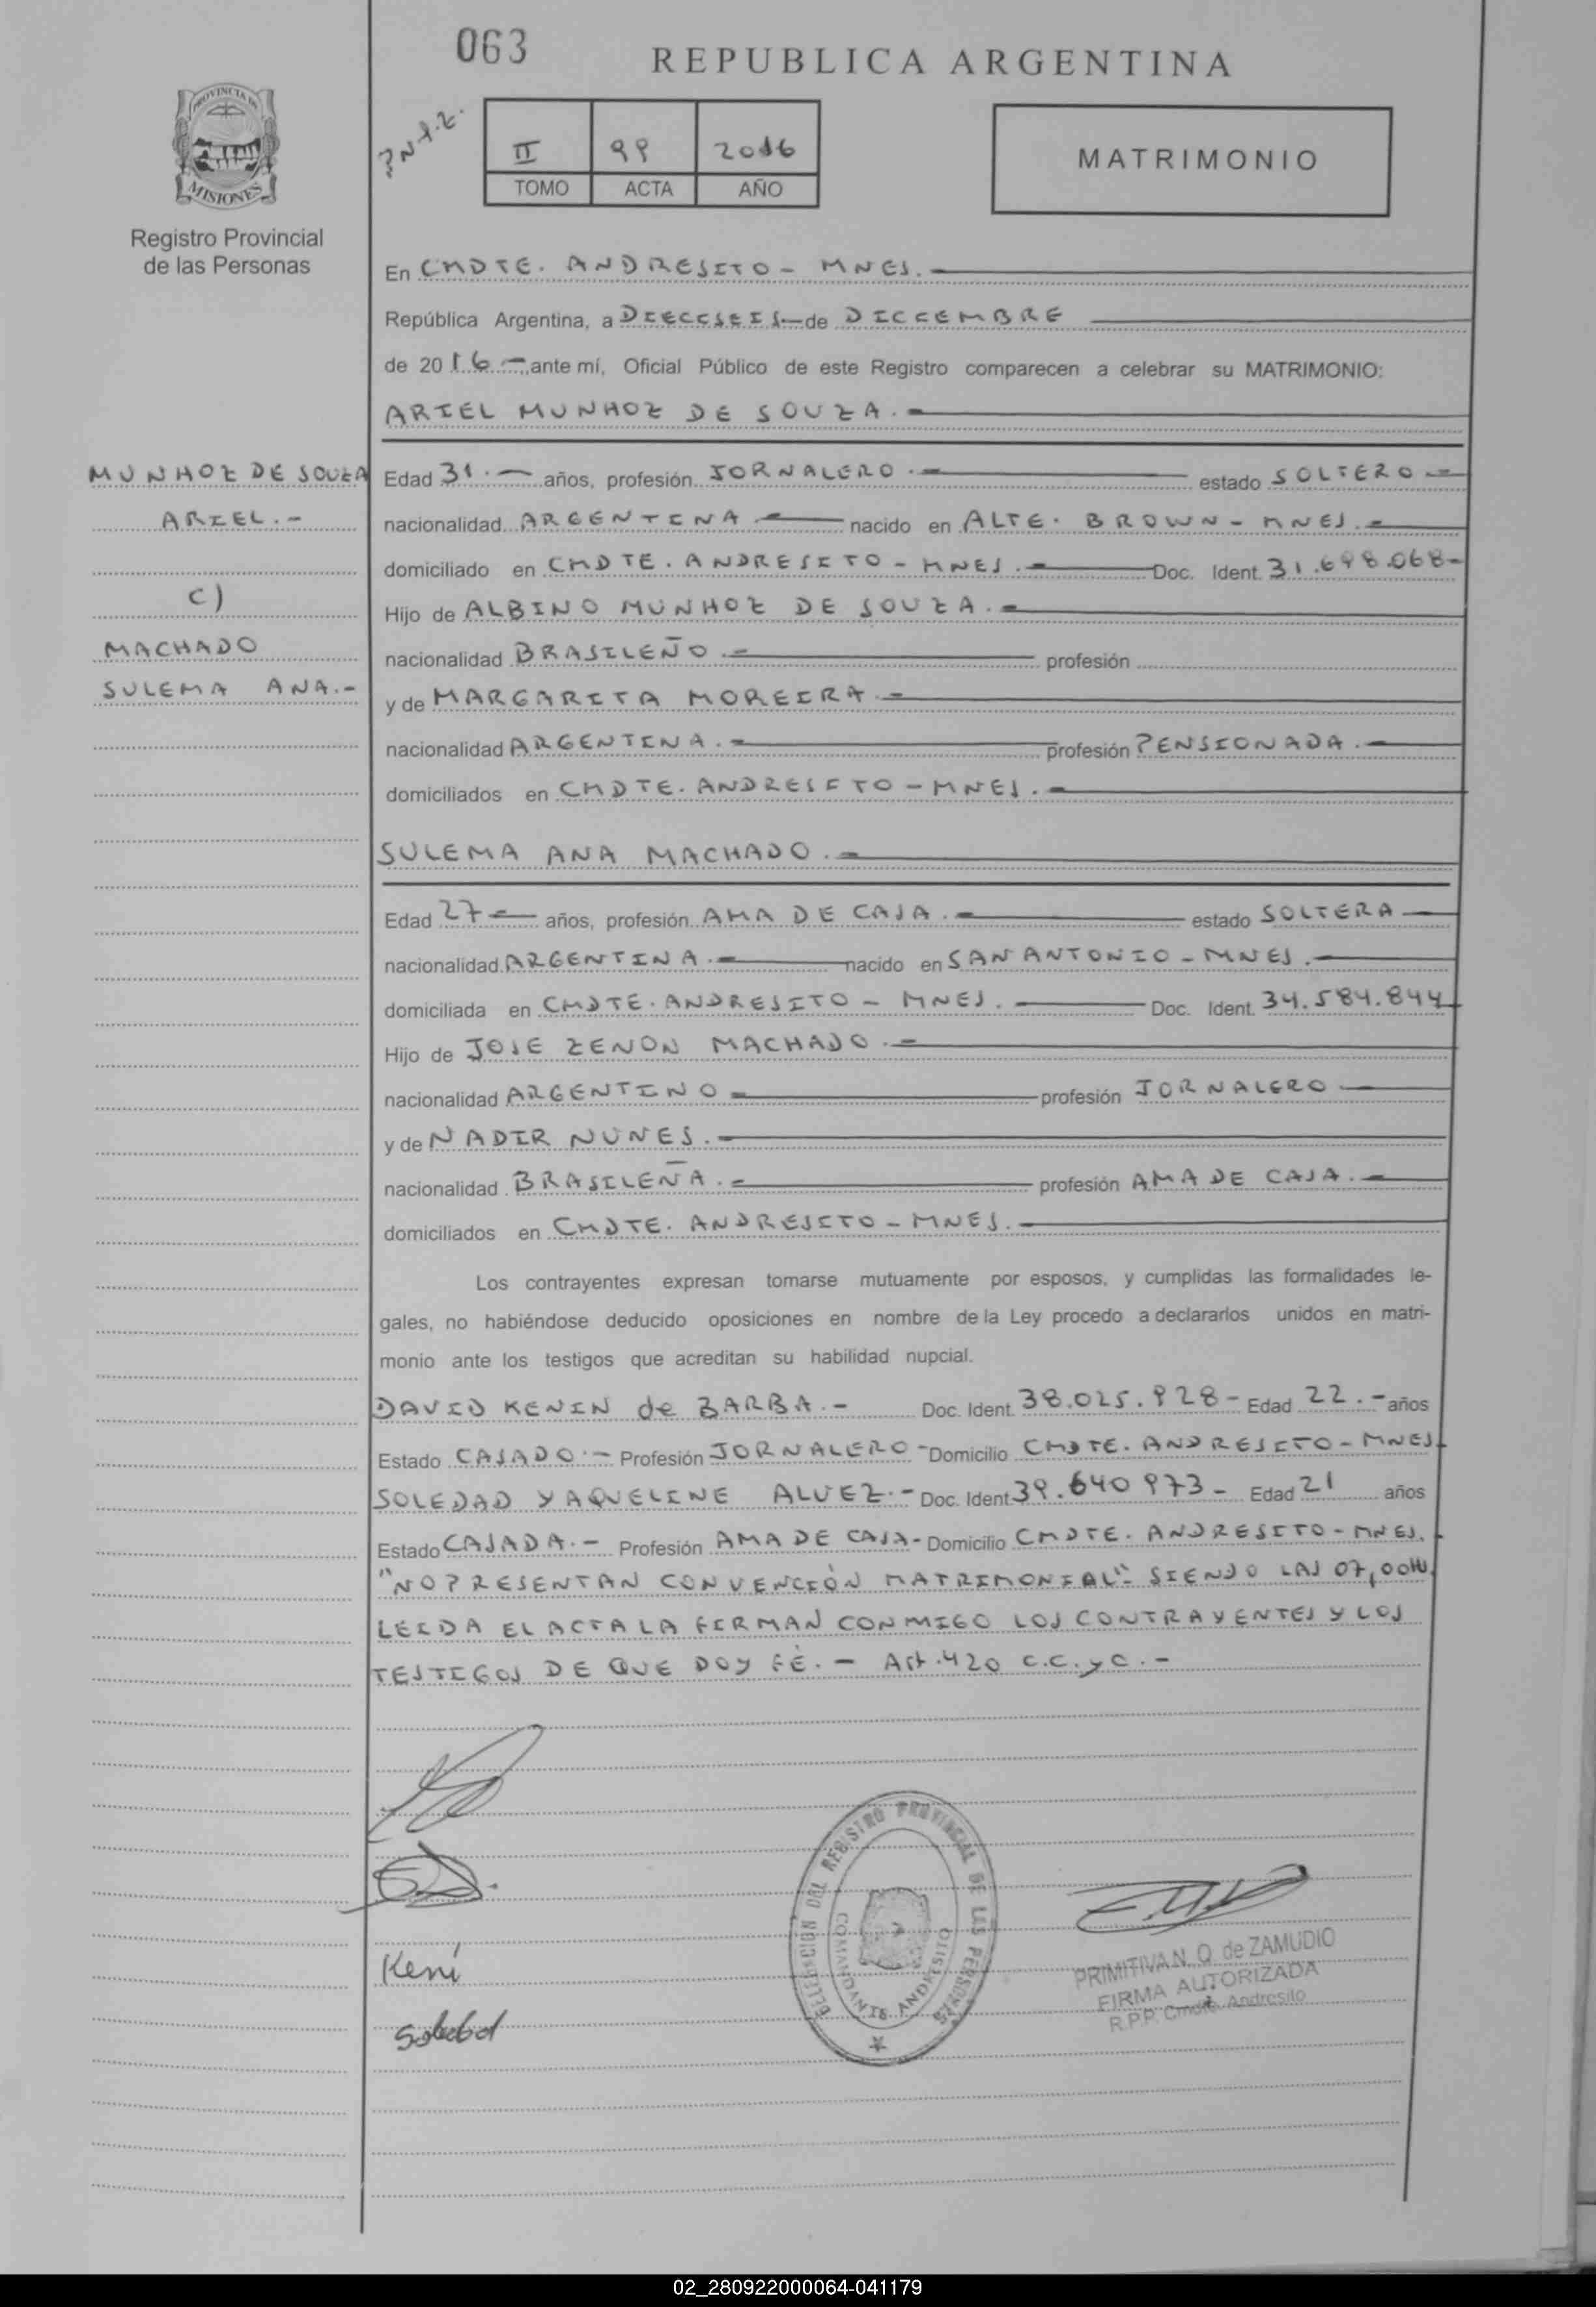 063
REPUBLICA ARGENTINA
PROVINCIA DE
MISIONES
Registro Provincial
de las Personas
II 99 2016
TOMO ACTA AÑO
MATRIMONIO
En CMDTE. ANDRESITO - MNES.-
República Argentina, a DIECISEIS - de DICIEMBRE
de 2016 - ante mí, Oficial Público de este Registro comparecen a celebrar su MATRIMONIO:
ARIEL MUNHOZ DE SOUZA.-
MUNHOZ DE SOUZA
ARIEL.-
C)
MACHADO
SULEMA ANA.-
Edad 31.- años, profesión JORNALERO.- estado SOLTERO-
nacionalidad ARGENTINA.- nacido en ALTE. BROWN - MNES.-
domiciliado en CMDTE. ANDRESITO - MNES.- Doc. Ident. 31.698.068-
Hijo de ALBINO MUNHOZ DE SOUZA.-
nacionalidad BRASILEÑO.- profesión
y de MARGARITA MOREIRA.-
nacionalidad ARGENTINA.- profesión PENSIONADA.-
domiciliados en CMDTE. ANDRESITO - MNES.-
SULEMA ANA MACHADO.-
Edad 27- años, profesión AMA DE CASA.- estado SOLTERA-
nacionalidad ARGENTINA.- nacido en SAN ANTONIO - MNES.-
domiciliada en CMDTE. ANDRESITO - MNES.- Doc. Ident. 34.584.844-
Hijo de JOSE ZENON MACHADO.-
nacionalidad ARGENTINO- profesión JORNALERO-
y de NADIR NUNES.-
nacionalidad BRASILEÑA.- profesión AMA DE CASA.-
domiciliados en CMDTE. ANDRESITO - MNES.-
Los contrayentes expresan tomarse mutuamente por esposos, y cumplidas las formalidades le-
gales, no habiéndose deducido oposiciones en nombre de la Ley procedo a declararlos unidos en matri-
monio ante los testigos que acreditan su habilidad nupcial.
DAVID KENIN de BARBA.- Doc. Ident. 38.025.928- Edad 22.- años
Estado CASADO.- Profesión JORNALERO- Domicilio CMDTE. ANDRESITO - MNES.
SOLEDAD YAQUELINE ALVEZ.- Doc. Ident 39.640973- Edad 21 años
Estado CASADA.- Profesión AMA DE CASA- Domicilio CMDTE. ANDRESITO - MNES.
"NO PRESENTAN CONVENCIÓN MATRIMONIAL"- SIENDO LAS 07,00Hs
LEIDA EL ACTA LA FIRMAN CONMIGO LOS CONTRAYENTES Y LOS
TESTIGOS DE QUE DOY FÉ.- Art.420 C.C.yC.-
Keni
Soledad
DELEGACION DEL REGISTRO PROVINCIAL DE LAS PERSONAS
COMANDANTE ANDRESITO
PRIMITIVA N. O. de ZAMUDIO
FIRMA AUTORIZADA
R.P.P. Cmdte. Andresito
02_280922000064-041179